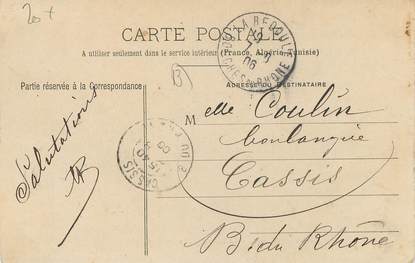 20 +
CARTE POSTALE
A utiliser seulement dans le service intérieur (France, Algérie, Tunisie)
Partie réservée à la Correspondance
ADRESSE DU DESTINATAIRE
LA BEDOULE
BCHES-DU-RHONE
06
Salutations
Melle Coulin
boulangère
Cassis
B. du Rhône
CASSIS